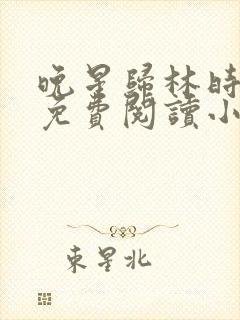 晚星歸林時
免費閱讀小
東星北